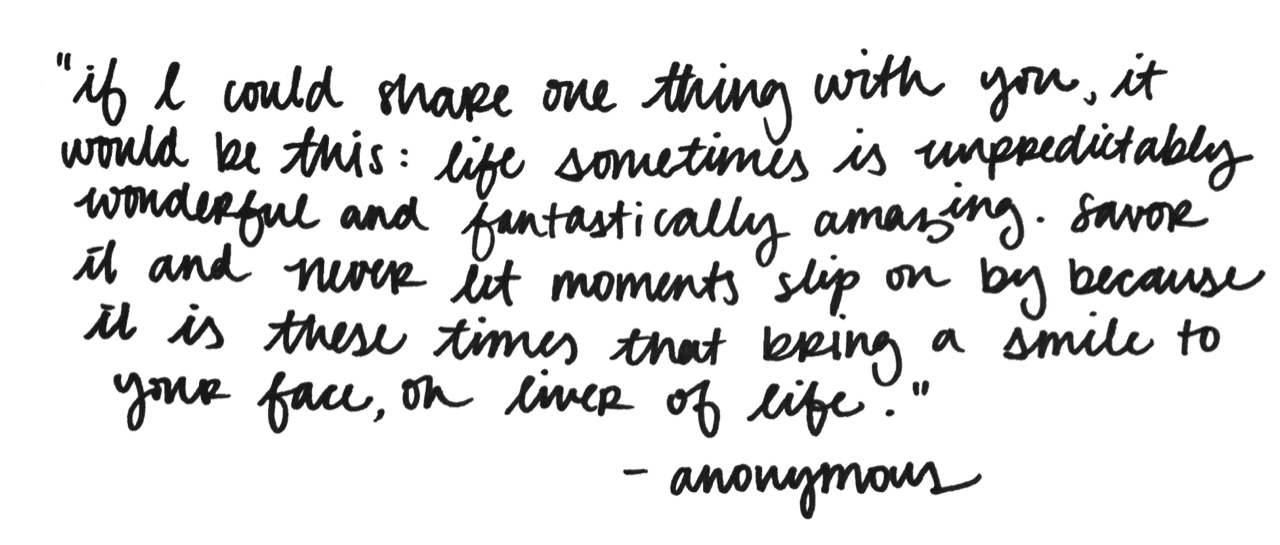 "if I could share one thing with you, it
would be this: life sometimes is unpredictably
wonderful and fantastically amazing. savor
it and never let moments slip on by because
it is these times that bring a smile to
your face, oh liver of life."
- anonymous